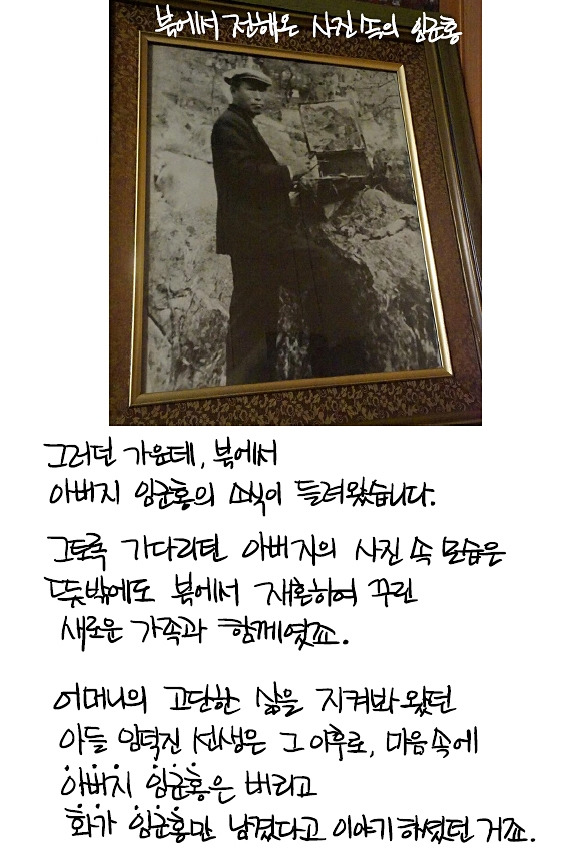 북에서 전해온 사진 속의 임군홍
그러던 가운데, 북에서
아버지 임군홍의 소식이 들려왔습니다.
그토록 기다리던 아버지의 사진 속 모습은
뜻밖에도 북에서 재혼하여 꾸린
새로운 가족과 함께였죠.
어머니의 고단한 삶을 지켜봐 왔던
아들 임덕진 선생은 그 이후로, 마음 속에
아버지 임군홍은 버리고
화가 임군홍만 남겼다고 이야기하셨던 거죠.